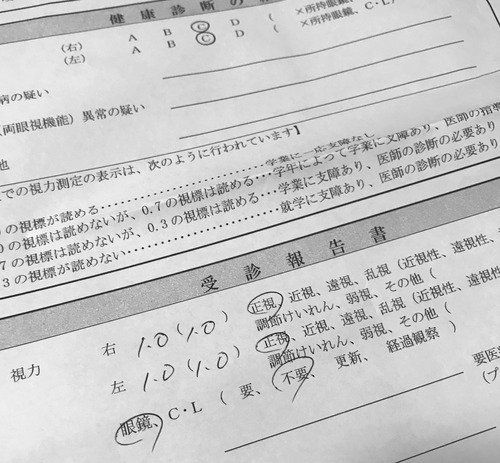 健康診断の
(右) A B C D (
(左) A B C D (
×所持眼鏡、C・L)
×所持眼鏡、C・L)
病の疑い
(両眼視機能)異常の疑い
他
での視力測定の表示は、次のように行われています】
の視標が読める………………学業に一応支障なし
0 の視標は読めないが、0.7 の視標は読める…学年によって学業に支障あり、医師の指導
7 の視標は読めないが、0.3 の視標は読める…学業に支障あり、医師の診断の必要あり
3 の視標が読めない………………就学に支障あり、医師の診断の必要あり
受診報告書
視力 右 1.0 (1.0) 正視、近視、遠視、乱視(近視性、遠視性、
調節けいれん、弱視、その他(
左 1.0 (1.0) 正視、近視、遠視、乱視(近視性、遠視性、
調節けいれん、弱視、その他(
眼鏡、C・L(要、不要、更新、経過観察)
要医
(プ